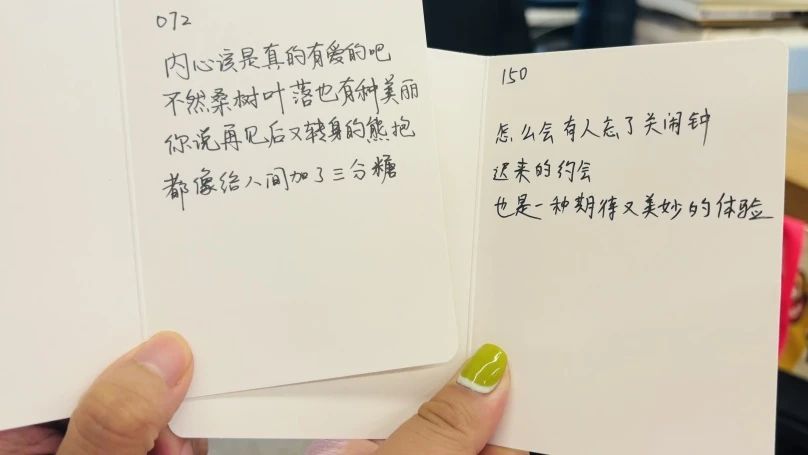 072
内心该是真的有爱的吧
不然桑树叶落也有种美丽
你说再见后又转身的熊抱
都像给人间加了三分糖
150
怎么会有人忘了关闹钟
迟来的约会
也是一种期待又美妙的体验